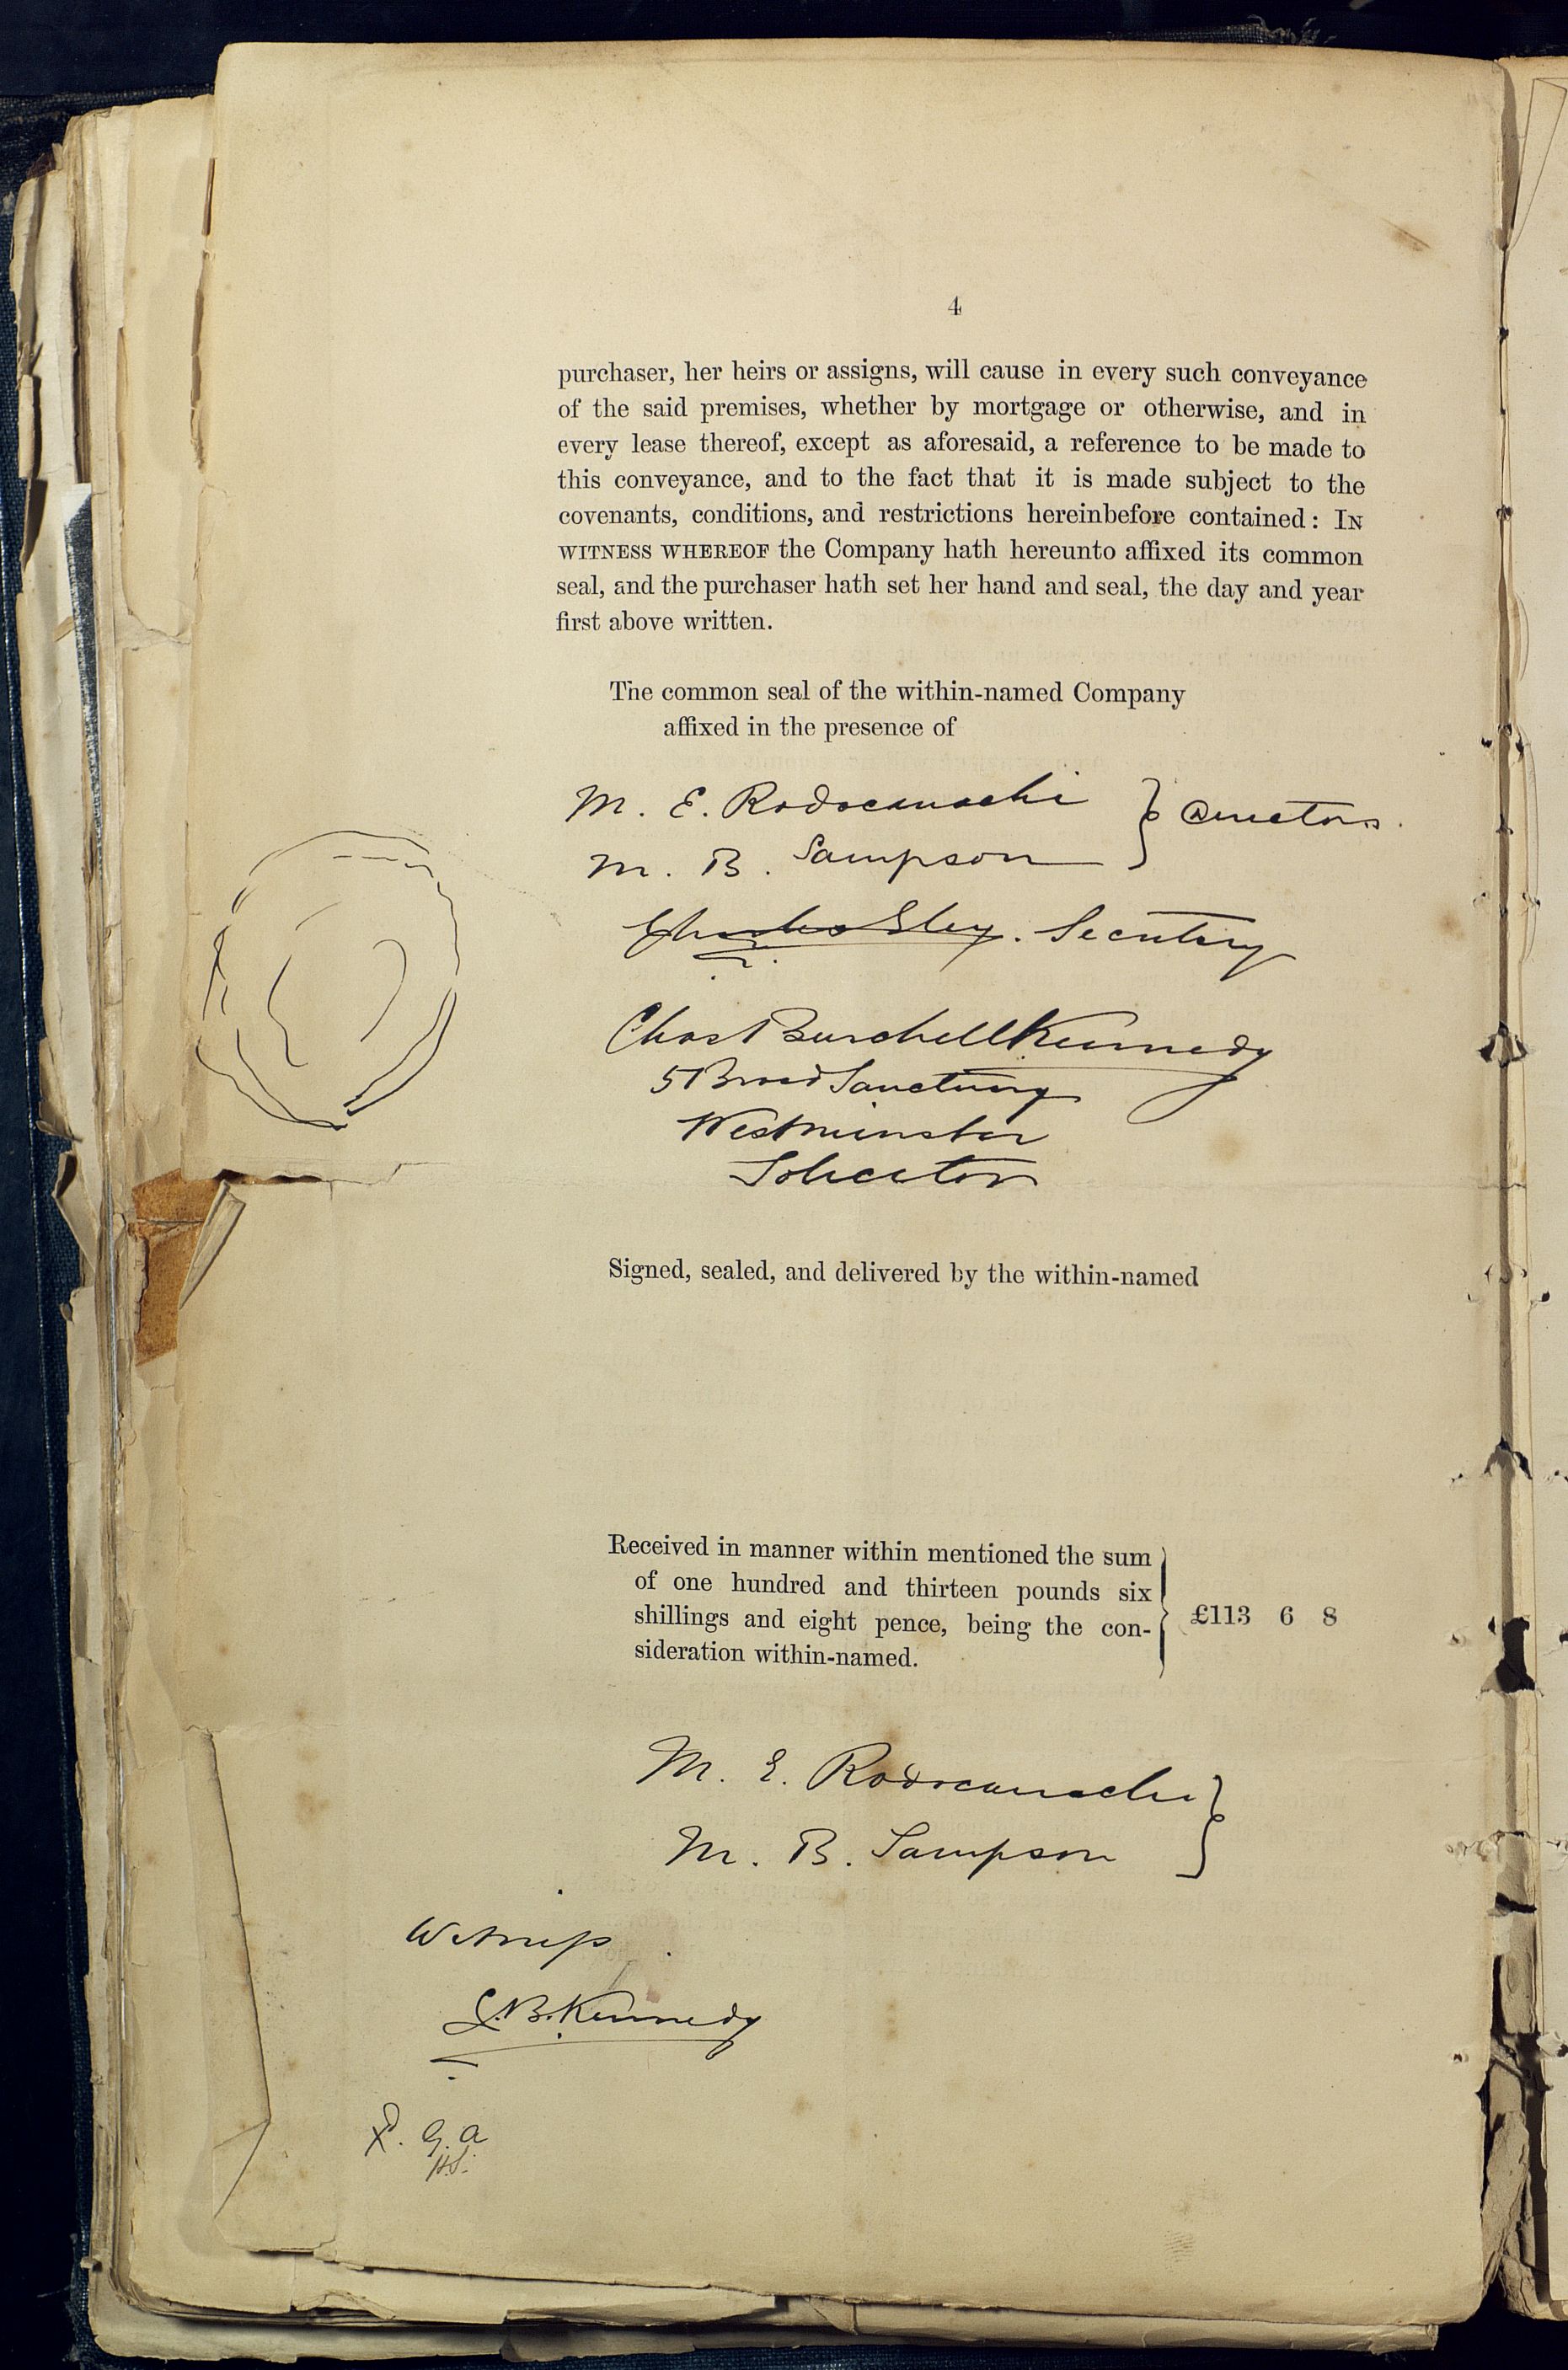 4
purchaser, her heirs or assigns, will cause in every such conveyance
of the said premises, whether by mortgage or otherwise, and in
every lease thereof, except as aforesaid, a reference to be made to
this conveyance, and to the fact that it is made subject to the
covenants, conditions, and restrictions hereinbefore contained: IN
WITNESS WHEREOF the Company hath hereunto affixed its common
seal, and the purchaser hath set her hand and seal, the day and year
first above written.
The common seal of the within-named Company
affixed in the presence of
M. E. Rodocanachi } Directors
M. B. Sampson
Charles Eley. Secretary
Chas Burchell Kennedy
5 Broad Sanctuary
Westminster
Solicitor
Signed, sealed, and delivered by the within-named
Received in manner within mentioned the sum
of one hundred and thirteen pounds six
shillings and eight pence, being the con-
sideration within-named.
£113 6 8
M. E. Rodocanachi }
M. B. Sampson
Witness
C.B. Kennedy
H.S.